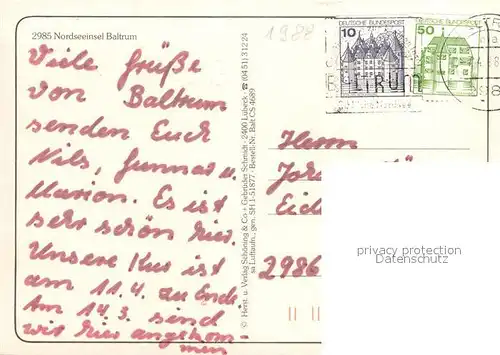 2985 Nordseeinsel Baltrum
1988
Viele Grüße
von Baltrum
senden Euch
Nils, Gunnar u.
Marion. Es ist
sehr schön hier.
Unsere Kur ist
am 11.4. zu Ende
Am 14.3. sind
wir hier angekom-
men
© Herst. u. Verlag Schöning & Co + Gebrüder Schmidt · 2400 Lübeck · ☎ (0451) 31224
sa Luftaufn., gen. SH 1-51877 · Bestell-Nr. Balt CS 4689
10
DEUTSCHE BUNDESPOST
DEUTSCHE BUNDESPOST
50
Herrn
2986
privacy protection
Datenschutz